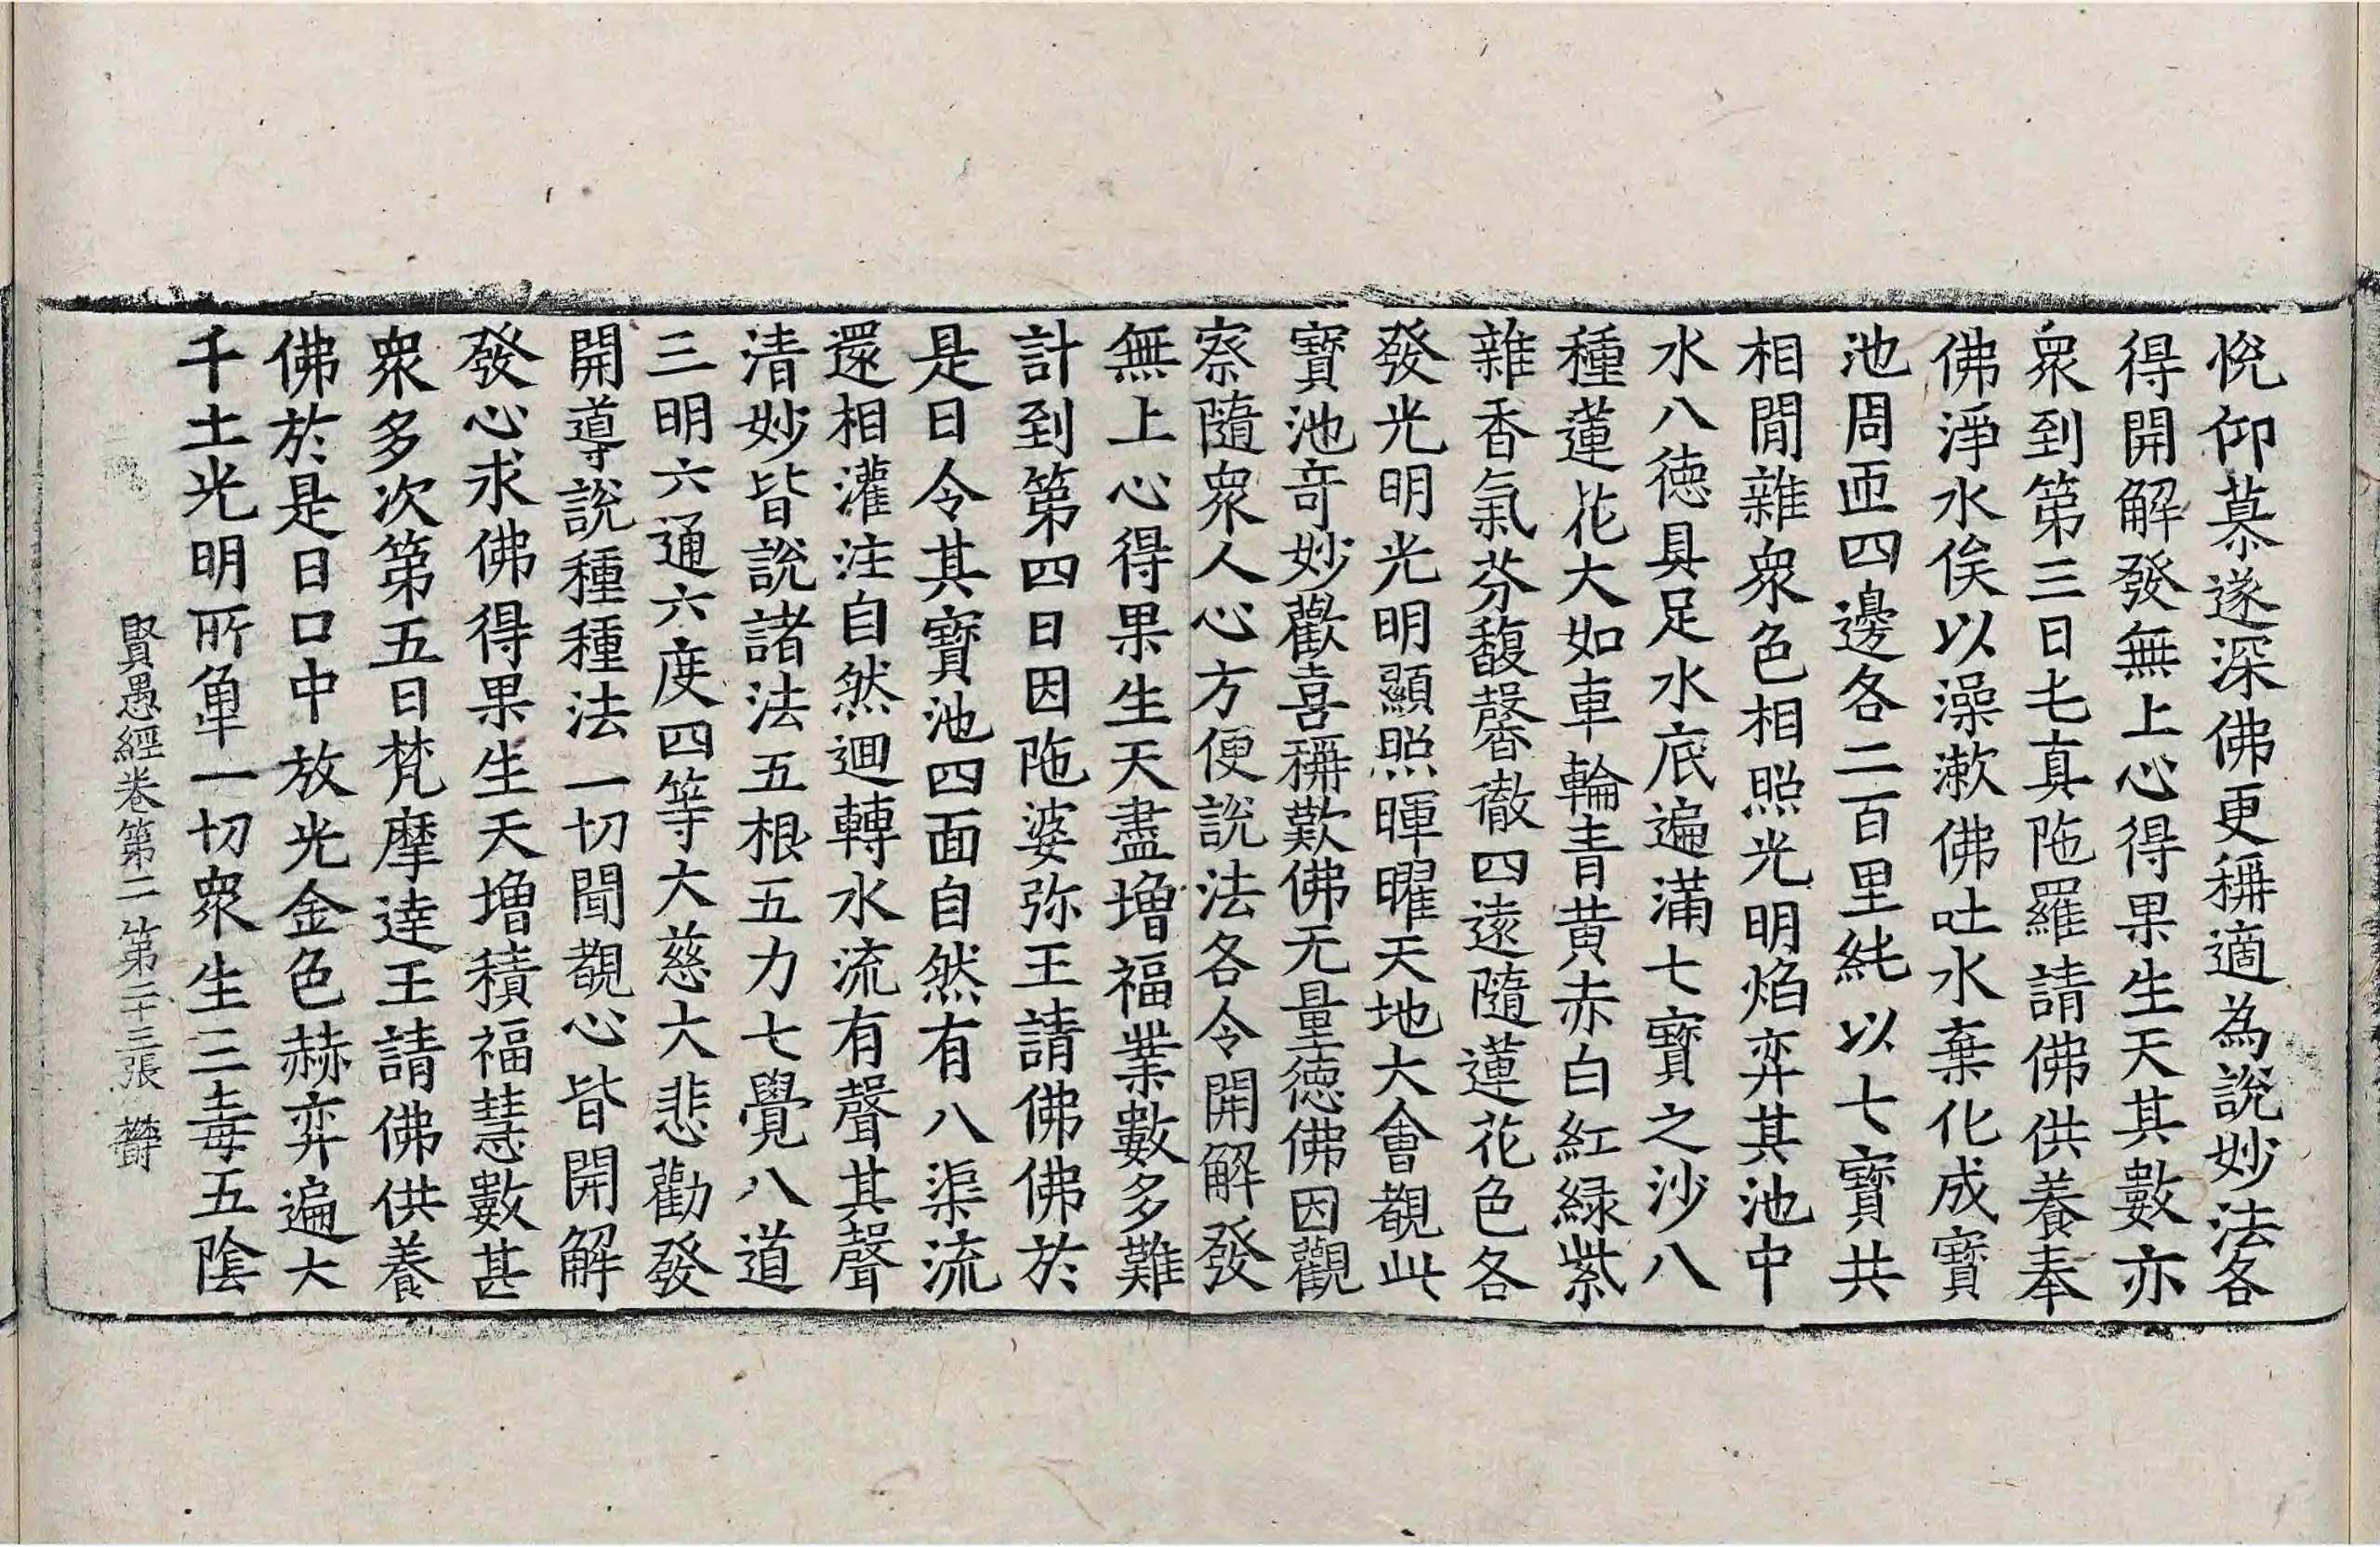 悅仰慕遂深佛更稱適為說妙法各
得開解發無上心得果生天其數亦
衆到第三日屯真陁羅請佛供養奉
佛淨水俟以澡漱佛吐水棄化成寶
池周匝四邊各二百里純以七寶共
相間雜衆色相照光明焰弈其池中
水八德具足水底遍滿七寶之沙八
種蓮花大如車輪青黃赤白紅緑紫
雜香氣芬馥馨徹四遠隨蓮花色各
發光明光明顯照暉曜天地大會覩此
寶池竒妙歡喜稱歎佛无量德佛因觀
察隨衆人心方便說法各令開解發
無上心得果生天盡增福業數多難
計到第四日因陁婆弥王請佛佛於
是日令其寶池四面自然有八渠流
還相灌注自然迴轉水流有聲其聲
清妙皆說諸法五根五力七覺八道
三明六通六度四等大慈大悲勸發
開導說種種法一切聞覩心皆開解
發心求佛得果生天增積福慧數甚
衆多次第五日梵摩達王請佛供養
佛於是日口中放光金色赫弈遍大
千土光明所觸一切衆生三毒五陰
賢愚經卷第二 第二十三張 欝